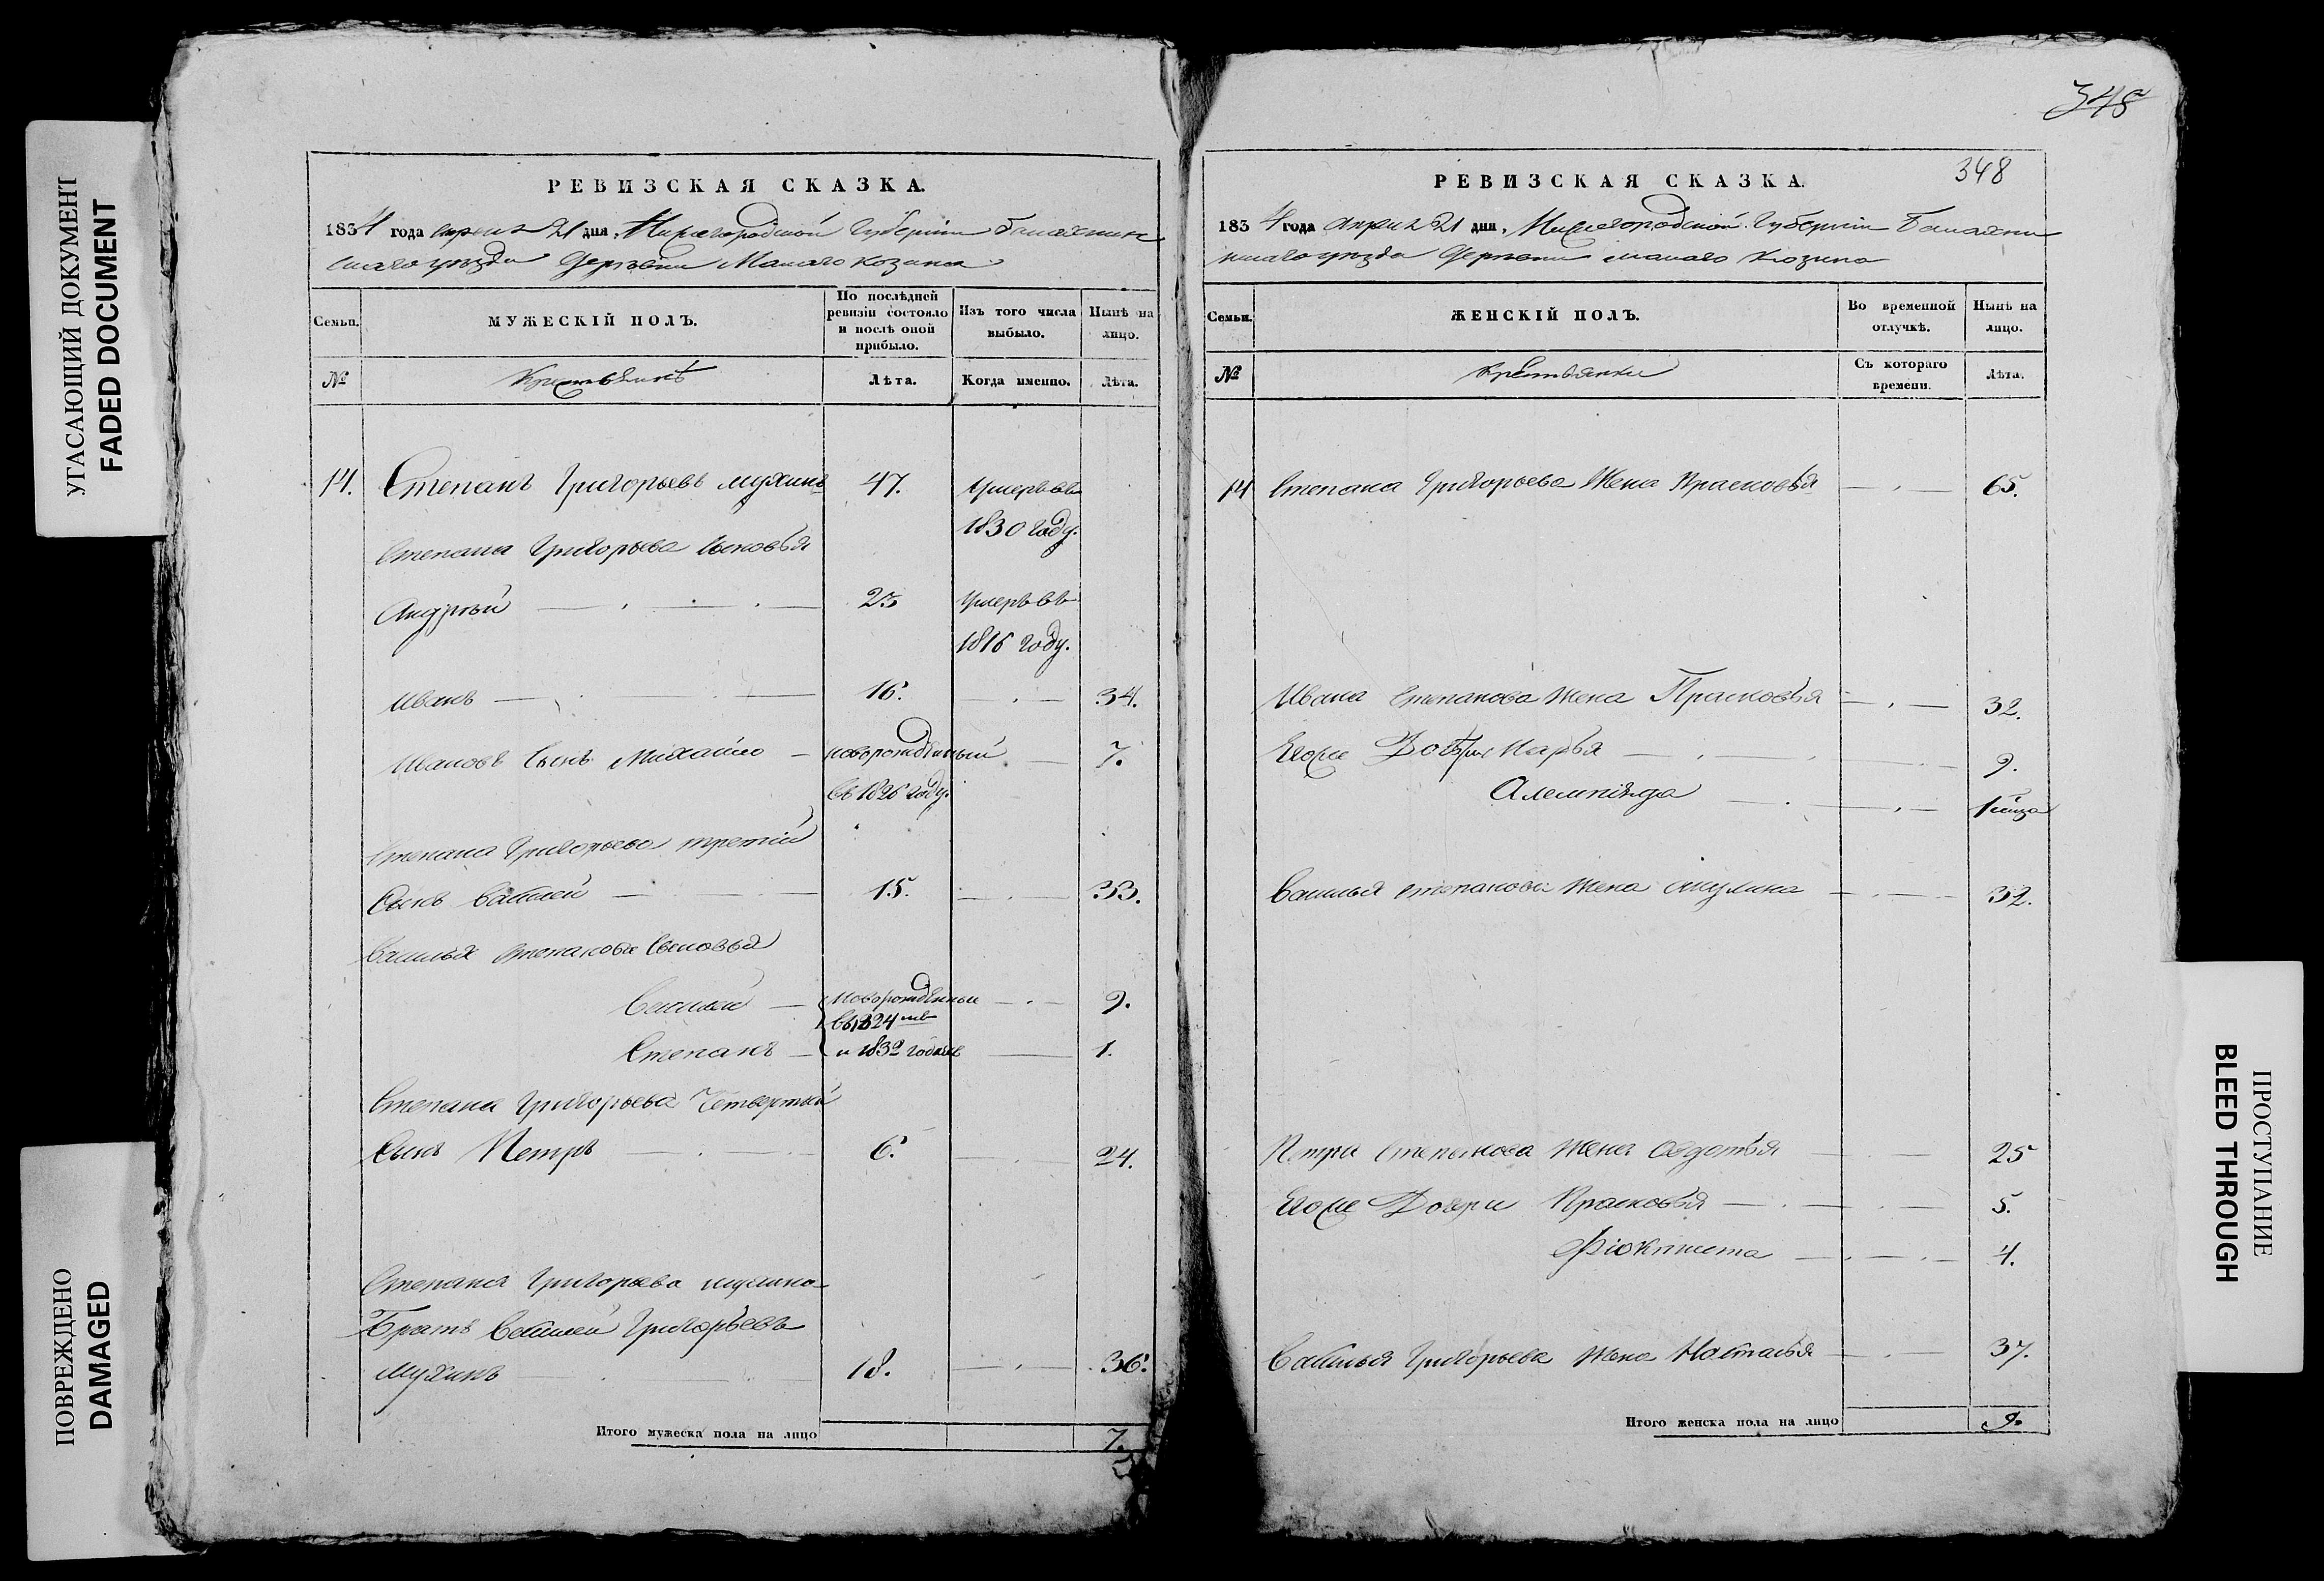 УГАСАЮЩИЙ ДОКУМЕНТ
FADED DOCUMENT
ПОВРЕЖДЕНО
DAMAGED
РЕВИЗСКАЯ СКАЗКА.
1834 года апреля 21 дня. Нижегородской Губернiи Балахнин
скаго уезда Деревни Малаго Козина
Семьи. МУЖЕСКIЙ ПОЛЪ. По послѣдней ревизiи состояло и послѣ оной прибыло. Изъ того числа выбыло. Нынѣ на лицо.
№ Крестьянъ Лѣта. Когда именно. Лѣта.
14. Степанъ Григорьевъ Мухинъ 47. Умеръ въ
1830 году.
Степана Григорьева Сыновья
Андрѣй 23 Умеръ въ
1816 году.
Иванъ 16. 34.
Ивановъ Сынъ Михайло новорожденный 7.
въ 1826 году.
Степана Григорьева третiй
Сынъ Василей 15. 33.
Василья Степанова Сыновья
Василей новорожденные 9.
въ 1824мъ
Степанъ и 1832 годахъ 1.
Степана Григорьева Четвертый
Сынъ Петръ 6. 24.
Степана Григорьева Мухина
Братъ Василей Григорьевъ
Мухинъ 18. 36.
Итого мужеска пола на лицо 7.
348
348
РЕВИЗСКАЯ СКАЗКА.
1834 года апреля 21 дня. Нижегородской Губернiи Балахни
нскаго уезда Деревни малаго Козина
Семьи. ЖЕНСКIЙ ПОЛЪ. Во временной отлучкѣ. Нынѣ на лицо.
№ Крестьянки Съ котораго времени. Лѣта.
14 Степана Григорьева Жена Прасковья 65.
Ивана Степанова Жена Прасковья 32.
Егоже Дочери Марья 9.
Алемпiяда 1
Василья Степанова Жена Акулина 32.
Петра Степанова Жена Авдотья 25
Егоже Дочери Прасковья 5.
Фiоктиста 4.
Василья Григорьева Жена Наталья 37.
Итого женска пола на лицо 9.
ПРОСТУПАНИЕ
BLEED THROUGH